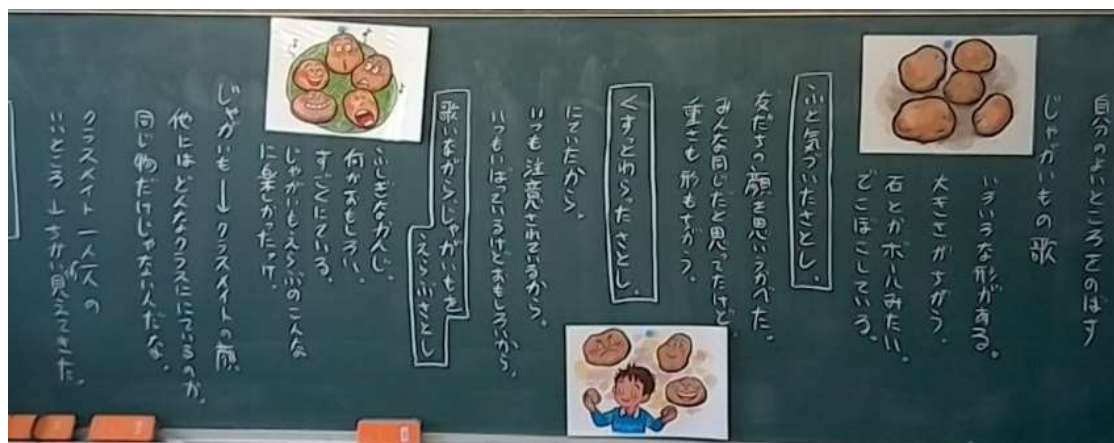 自分のよいところをのばす
じゃがいもの歌
いろいろな形がある。
大きさがちがう。
石とかボールみたい。
でこぼこしている。
ふと気づいたさとし。
友だちの顔を思いうかべた。
みんな同じだと思ってたけど、
重さも形もちがう。
くすっとわらったさとし。
にていたから。
いつも注意されているから。
いつもいばっているけどおもしろいから。
歌いながら、じゃがいもを
えらぶさとし
ふしぎなかんじ。
何かおもしろい。
すごくにている。
じゃがいもえらぶのこんな
に楽しかったっけ。
じゃがいも→クラスメイトの顔。
他にはどんなクラスににているのか。
同じ物だけじゃないんだな。
クラスメイト一人一人の
いいところ→ちがい見えてきた。